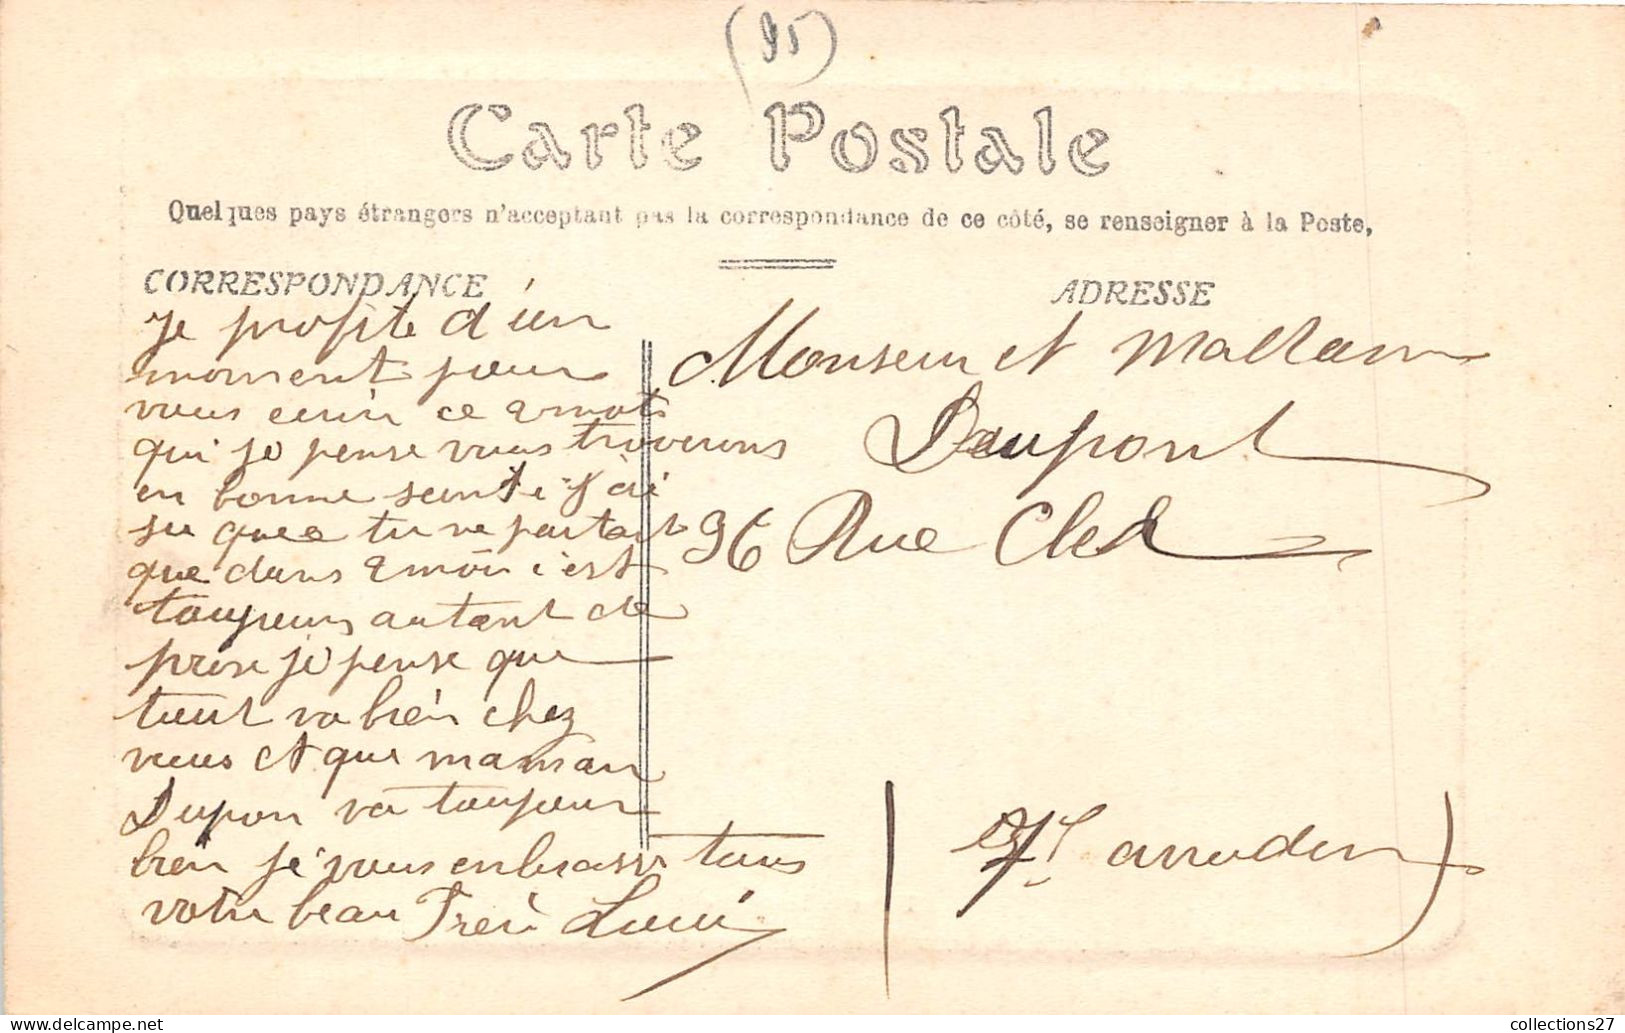 (95)
Carte Postale
Quelques pays étrangers n'acceptant pas la correspondance de ce côté, se renseigner à la Poste,
CORRESPONDANCE
Je profite d'un
moment pour
vous ecrir ce 2 mots
qui je pense vous trouverons
en bonne sante j'ai
su que tu ne partait
que dans 2 moi c'est
toujours autant de
pris je pense que
tout va bien chez
vous et que maman
Dupon va toujour
bien je vous enbrasse tous
votre beau Frere Louis
ADRESSE
Monseur et Madame
Daupont
96 Rue Cler
7e arrondi
collections27